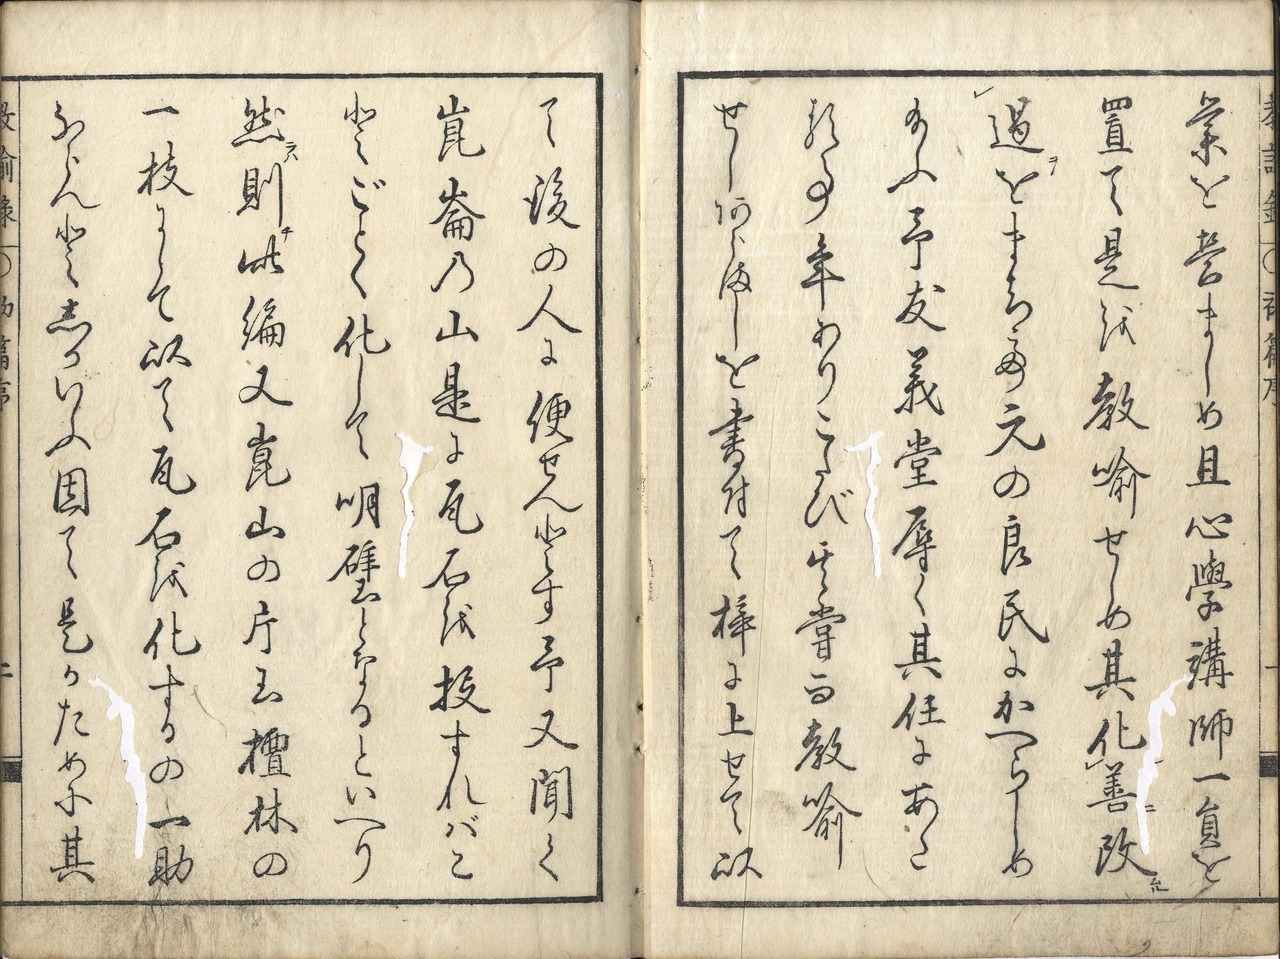 業を営ましめ且心學講師一員を
置て是を教喩せしめ其化善ニ改
過ヲをまちて元の良民にかへらしめ
給ふ予友義堂辱く其任にあたる
年ありこたび其嘗て教喩
せしあらましを書付て梓に上せて以
て後の人に便せんとす予又聞く
崑崙乃山是に瓦石を投すればこと
ごとく化して明璧となるといへり
然ラハ則チ此編又崑山の片玉檀林の
一枝にして以て瓦石を化するの一助
ならんと志かいふ因て是かために其
教諭録 〇 初篇序 二